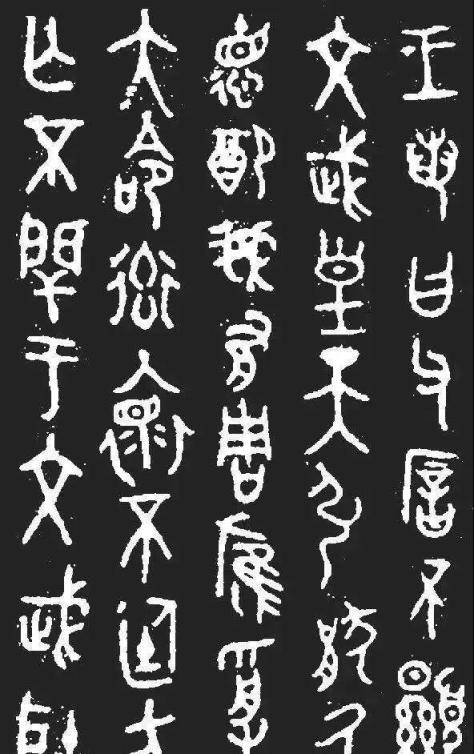 王若曰父㕌不顯
文武皇天引猒氒
德配我有周膺受
大命率褱不廷方
亡不閈于文武耿